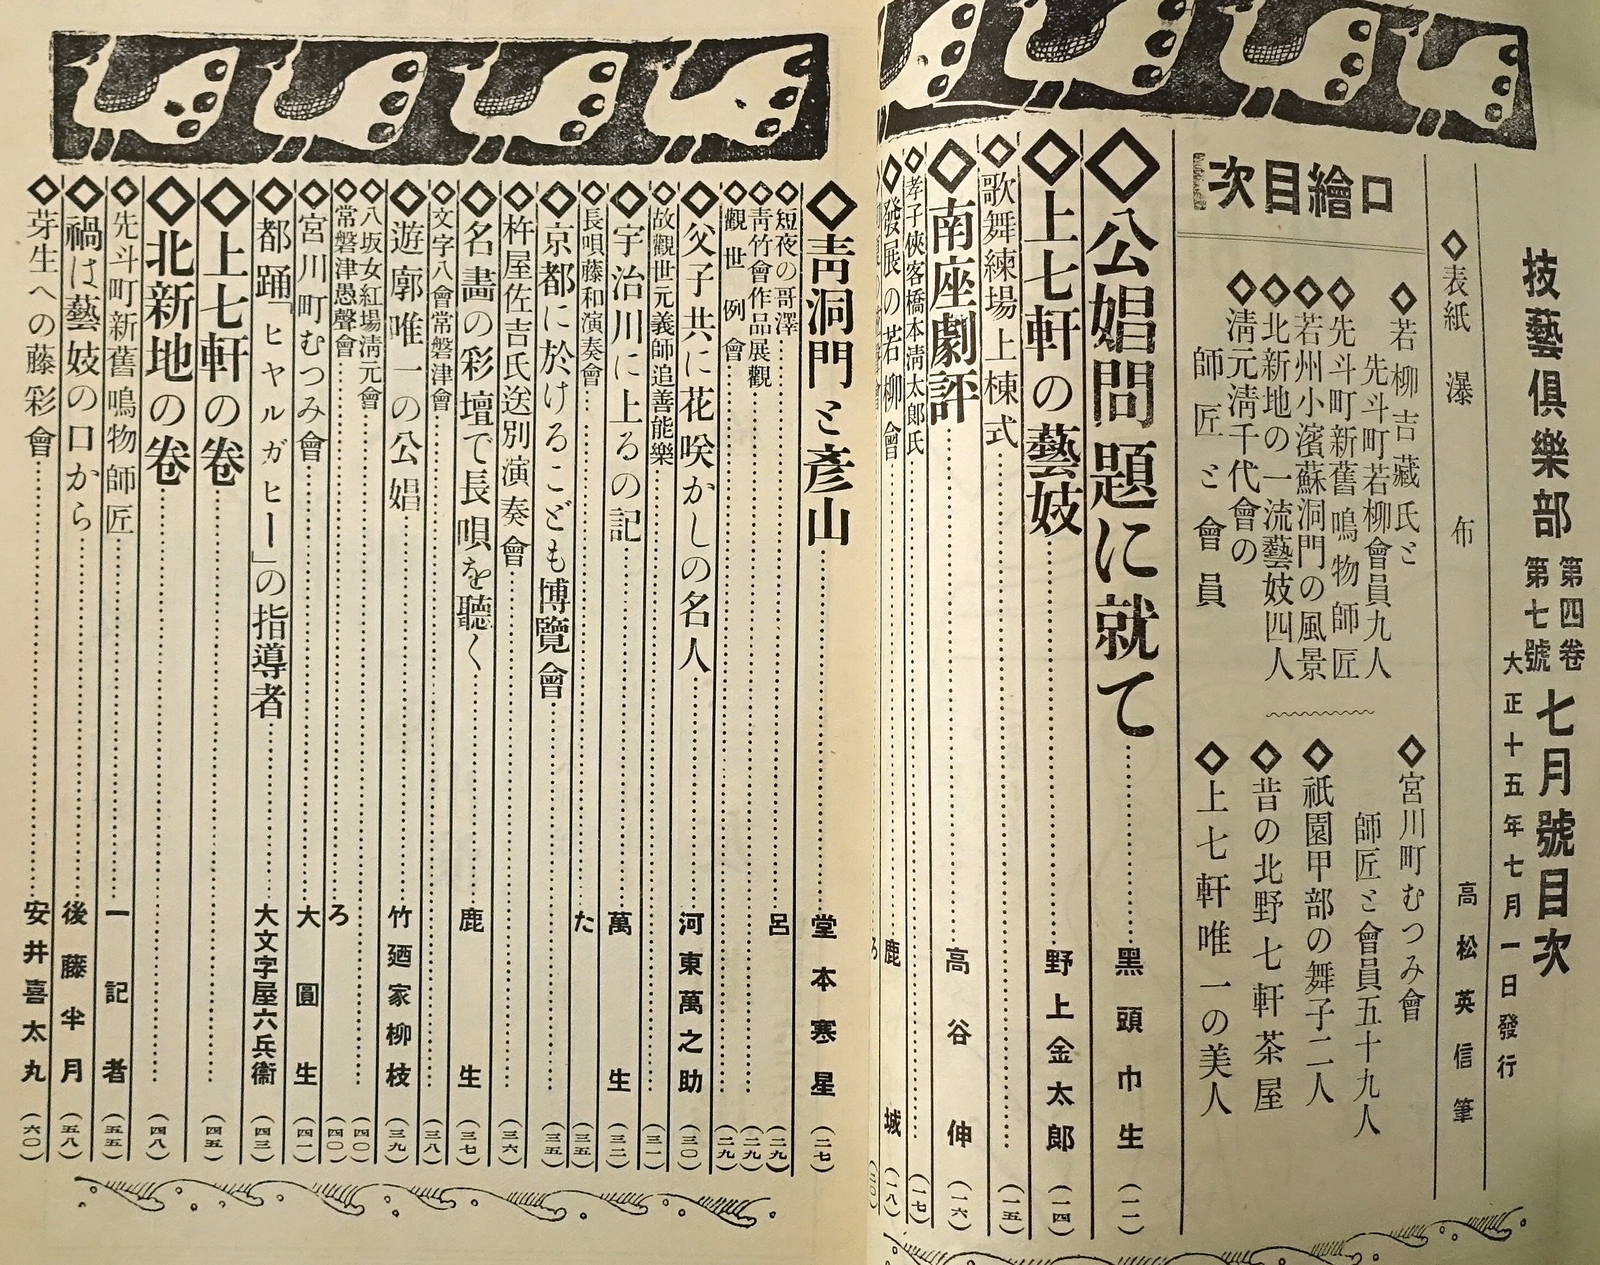 技藝俱樂部
第四卷
第七號
七月號目次
大正十五年七月一日發行
◇表紙 瀑布 高松英信筆
口繪目次
◇若柳吉藏氏と
先斗町若柳會員九人
◇先斗町新舊鳴物師匠
◇若州小濱蘇洞門の風景
◇北新地の一流藝妓四人
◇淸元淸千代會の
師匠と會員
◇宮川町むつみ會
師匠と會員五十九人
◇祇園甲部の舞子二人
◇昔の北野七軒茶屋
◇上七軒唯一の美人
◇公娼問題に就て 黑頭巾生 (一一)
◇上七軒の藝妓 野上金太郎 (一四)
◇歌舞練場上棟式 (一五)
◇南座劇評 高谷伸 (一六)
◇孝子俠客橋本淸太郎氏 (一七)
◇發展の若柳會 鹿城 (一八)
ろ (二〇)
◇靑洞門と彥山 堂本寒星 (二七)
◇短夜の哥澤 呂 (二九)
◇靑竹會作品展觀 (二九)
◇觀世例會 (二九)
◇父子共に花咲かしの名人 河東萬之助 (三〇)
◇故觀世元義師追善能樂 (三一)
◇宇治川に上るの記 萬生 (三二)
◇長唄藤和演奏會 た (三五)
◇京都に於けるこども博覽會 (三五)
◇杵屋佐吉氏送別演奏會 (三六)
◇名畵の彩壇で長唄を聽く 鹿生 (三七)
◇文字八會常磐津會 (三八)
◇遊廓唯一の公娼 竹廼家柳枝 (三九)
◇八坂女紅場淸元會 (四〇)
◇常磐津愚聲會 ろ (四〇)
◇宮川町むつみ會 大圓生 (四一)
◇都踊「ヒヤルガヒー」の指導者 大文字屋六兵衞 (四三)
◇上七軒の卷 (四五)
◇北新地の卷 (四八)
◇先斗町新舊鳴物師匠 一記者 (五五)
◇禍は藝妓の口から 後藤半月 (五八)
◇芽生への藤彩會 安井喜太丸 (六〇)